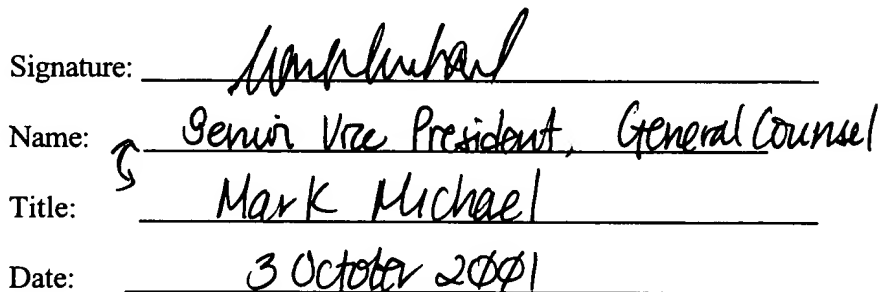 Signature: Mark Michael
Name: Senior Vice President, General Counsel
Title: Mark Michael
Date: 3 October 2001